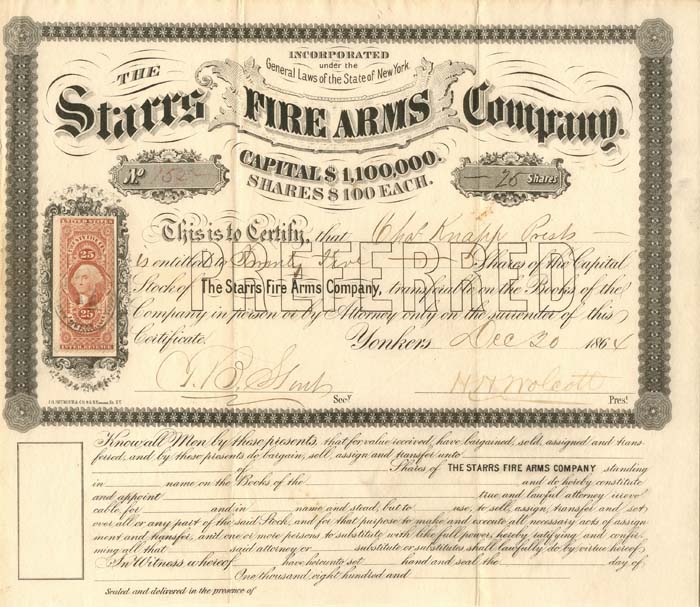 INCORPORATED
under the
General Laws of the State of New York.
THE
Starrs FIRE ARMS Company.
CAPITAL $1,100,000.
SHARES $100 EACH.
No 152
25 Shares
PREFERRED
This is to Certify, that Chas Knapp Prest
is entitled to Twenty Five Shares of the Capital
Stock of The Starrs Fire Arms Company, transferable on the Books of the
Company in person or by Attorney only on the surrender of this
Certificate. Yonkers Dec 20 1864
Secy
H H Wolcott
Prest
UNITED STATES
25
25
INTER. REVENUE
Know all Men by these presents, that for value received, have bargained, sold, assigned and trans-
ferred, and by these presents do bargain, sell, assign and transfer unto
of Shares of THE STARRS FIRE ARMS COMPANY standing
in name on the Books of the and do hereby constitute
and appoint true and lawful attorney irrevo
cable, for and in name and stead, but to use, to sell, assign, transfer and set
over all or any part of the said Stock, and for that purpose to make and execute all necessary acts of assign
ment and transfer, and one or more persons to substitute with like full power, hereby ratifying and confir-
ming all that said attorney or substitute or substitutes shall lawfully do by virtue hereof.
In Witness whereof have hereunto set hand and seal the day of
One thousand, eight hundred and
Sealed and delivered in the presence of